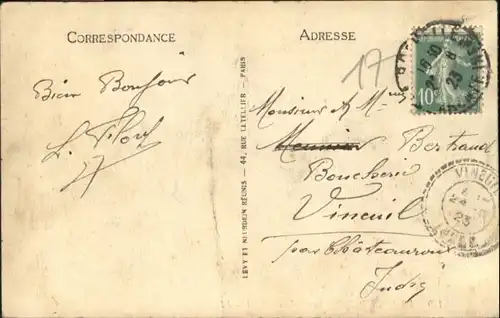 CORRESPONDANCE
ADRESSE
17
10c
23
Bien Bonjour
Monsieur & Mme
Meunier Bertrand
Boucherie
Vineuil
par Châteauroux
Indre
VINEUIL
23
LEVY ET NEURDEIN RÉUNIS - 44, RUE LETELLIER - PARIS